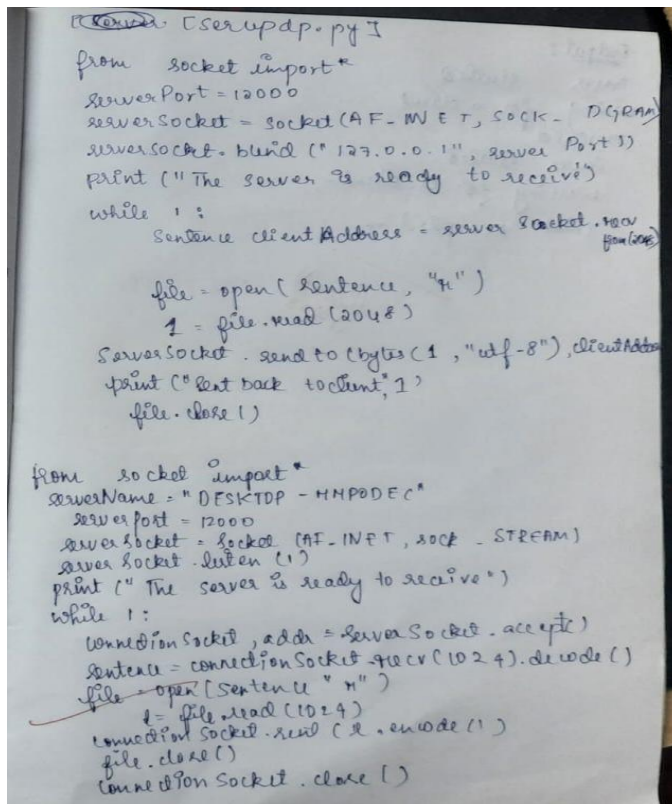 [serupdp.py]
from socket import*
serverPort = 12000
serverSocket = socket(AF-INET, SOCK- DGRAM)
serversocket.bind("127.0.0.1", server Port))
print ("The server is ready to receive)
while 1:
Sentence clientAddress = server Socket.recv from(2048)
file = open(sentence, "r")
1 = file.read (2048)
ServerSocket. send to (bytes(1, "utf-8"), clientAddress
print ("Sent back toclient", 1)
file.close()
from socket import*
serverName = "DESKTOP - HMPODEC"
serverport = 12000
serversocket = Socket (AF-INET, sock - STREAM)
server socket.listen (1)
print (" The server is ready to receive")
while 1:
connectionSocket, addr = serverSocket.accept()
sentence = connectionSocket.recv(1024).decode()
file = open(sentence "r")
l = file.read(1024)
connection Socket.send (l.encode())
file.close()
connection Socket.close()